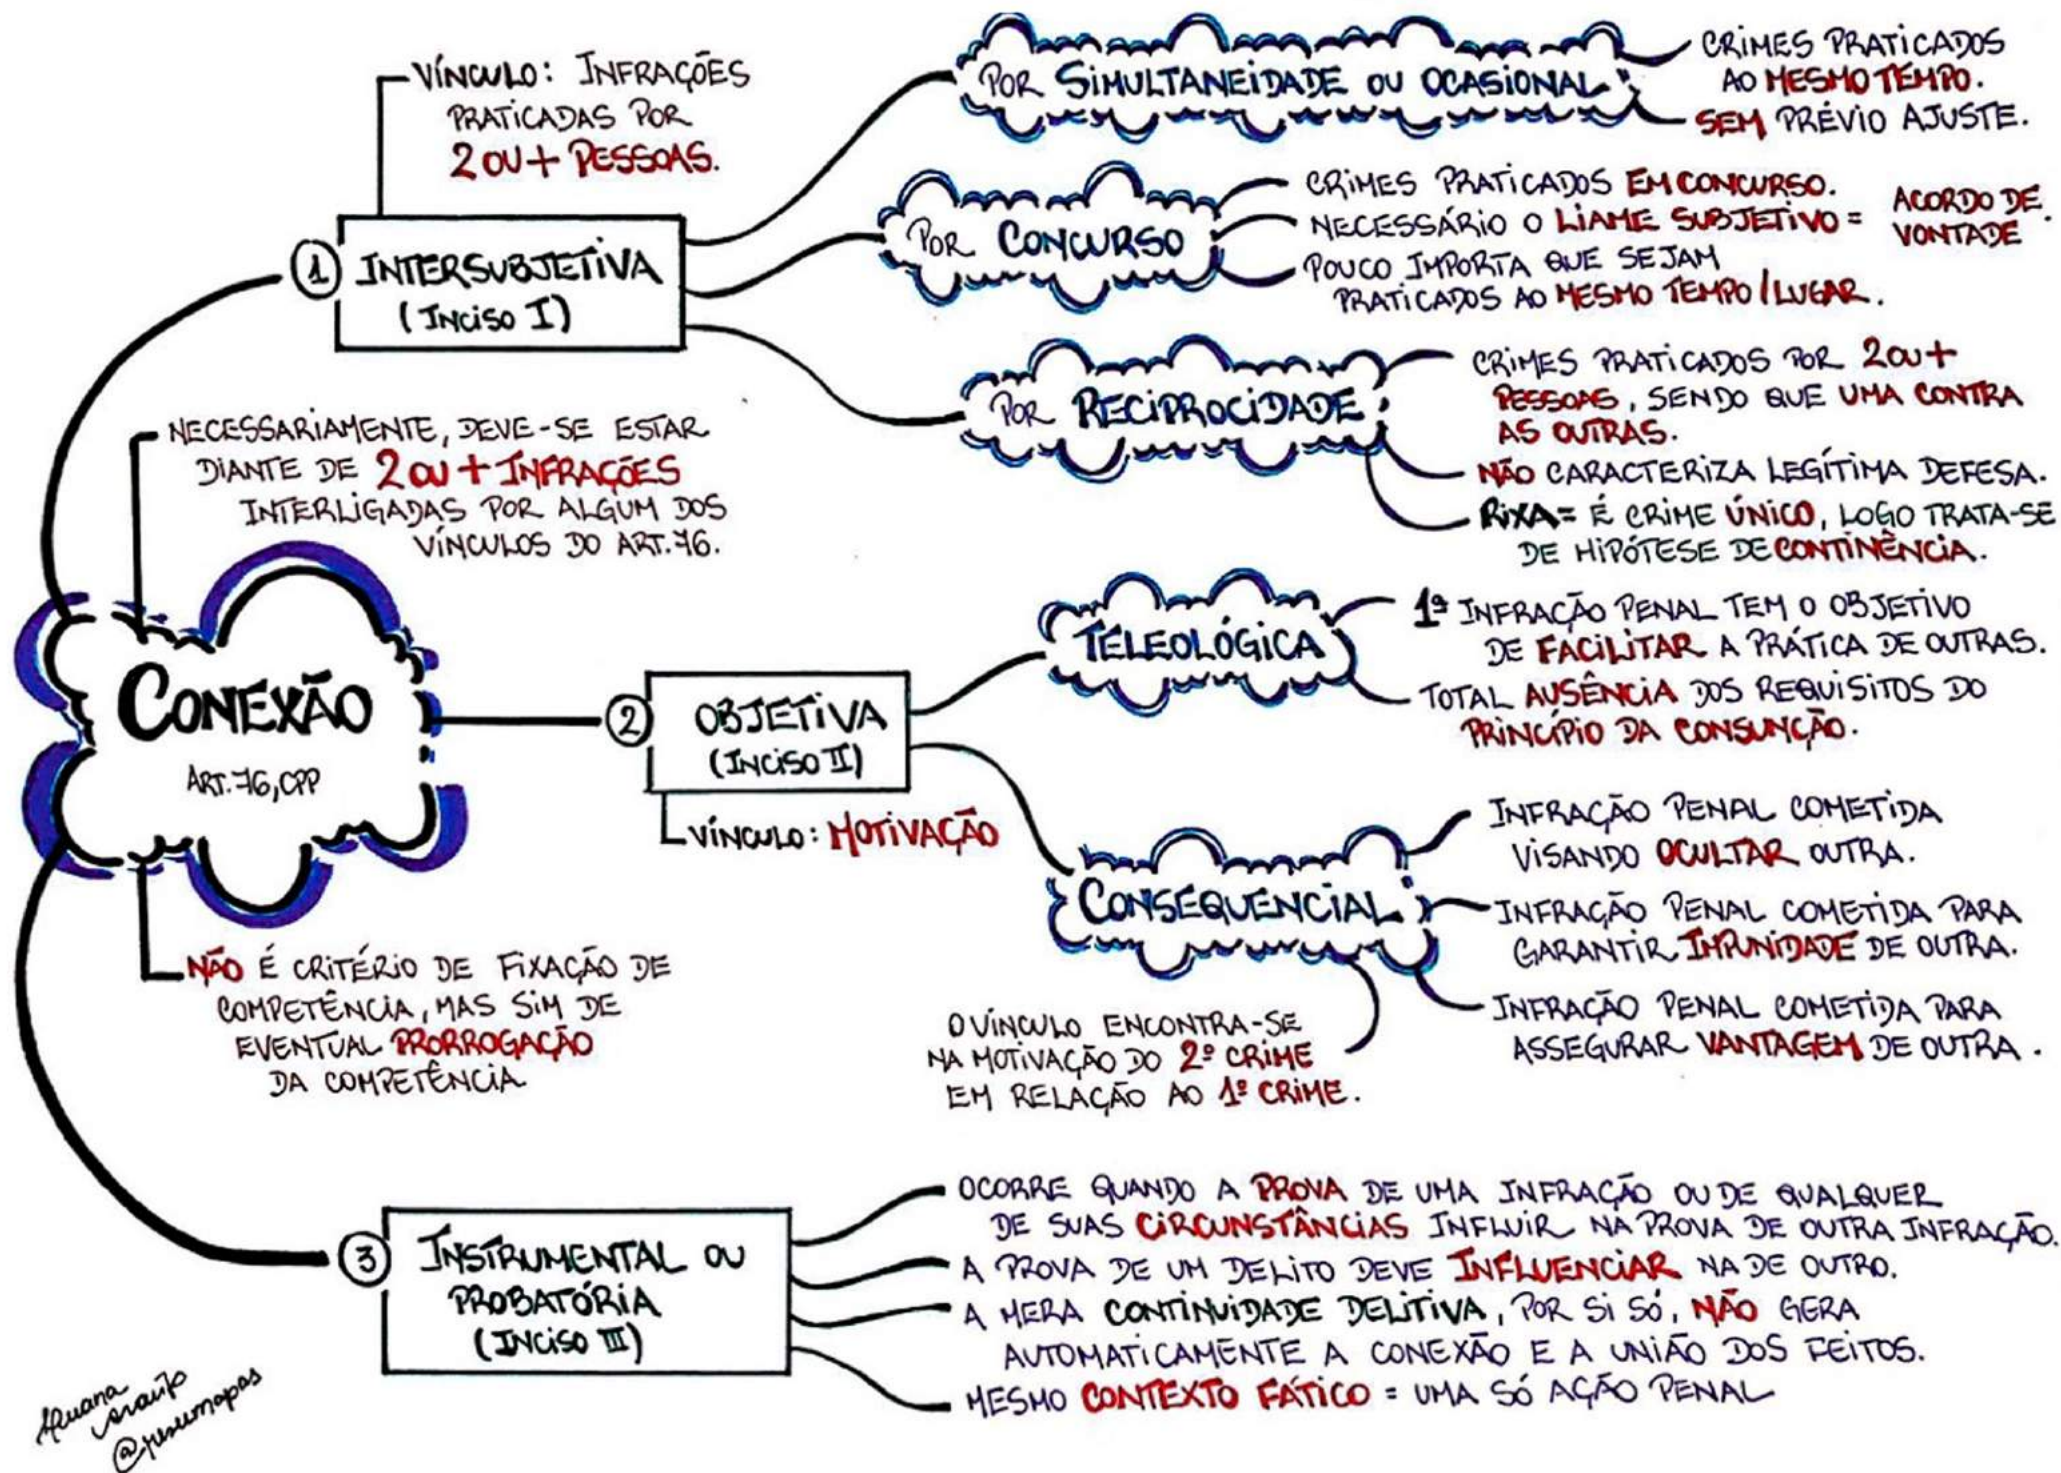 CONEXÃO
ART. 76, CPP
NECESSARIAMENTE, DEVE-SE ESTAR
DIANTE DE 2 OU + INFRAÇÕES
INTERLIGADAS POR ALGUM DOS
VÍNCULOS DO ART. 76.
NÃO É CRITÉRIO DE FIXAÇÃO DE
COMPETÊNCIA, MAS SIM DE
EVENTUAL PRORROGAÇÃO
DA COMPETÊNCIA
1 INTERSUBJETIVA
(INCISO I)
VÍNCULO: INFRAÇÕES
PRATICADAS POR
2 OU + PESSOAS.
POR SIMULTANEIDADE OU OCASIONAL
CRIMES PRATICADOS
AO MESMO TEMPO.
SEM PRÉVIO AJUSTE.
POR CONCURSO
CRIMES PRATICADOS EM CONCURSO.
NECESSÁRIO O LIAME SUBJETIVO = ACORDO DE
VONTADE.
POUCO IMPORTA QUE SEJAM
PRATICADOS AO MESMO TEMPO/LUGAR.
POR RECIPROCIDADE
CRIMES PRATICADOS POR 2 OU +
PESSOAS, SENDO QUE UMA CONTRA
AS OUTRAS.
NÃO CARACTERIZA LEGÍTIMA DEFESA.
RIXA = É CRIME ÚNICO, LOGO TRATA-SE
DE HIPÓTESE DE CONTINÊNCIA.
2 OBJETIVA
(INCISO II)
VÍNCULO: MOTIVAÇÃO
TELEOLÓGICA
1ª INFRAÇÃO PENAL TEM O OBJETIVO
DE FACILITAR A PRÁTICA DE OUTRAS.
TOTAL AUSÊNCIA DOS REQUISITOS DO
PRINCÍPIO DA CONSUNÇÃO.
CONSEQUENCIAL
INFRAÇÃO PENAL COMETIDA
VISANDO OCULTAR OUTRA.
INFRAÇÃO PENAL COMETIDA PARA
GARANTIR IMPUNIDADE DE OUTRA.
INFRAÇÃO PENAL COMETIDA PARA
ASSEGURAR VANTAGEM DE OUTRA.
O VÍNCULO ENCONTRA-SE
NA MOTIVAÇÃO DO 2º CRIME
EM RELAÇÃO AO 1º CRIME.
3 INSTRUMENTAL OU
PROBATÓRIA
(INCISO III)
OCORRE QUANDO A PROVA DE UMA INFRAÇÃO OU DE QUALQUER
DE SUAS CIRCUNSTÂNCIAS INFLUIR NA PROVA DE OUTRA INFRAÇÃO.
A PROVA DE UM DELITO DEVE INFLUENCIAR NA DE OUTRO.
A MERA CONTINUIDADE DELITIVA, POR SI SÓ, NÃO GERA
AUTOMATICAMENTE A CONEXÃO E A UNIÃO DOS FEITOS.
MESMO CONTEXTO FÁTICO = UMA SÓ AÇÃO PENAL
Araújo
@resumapas